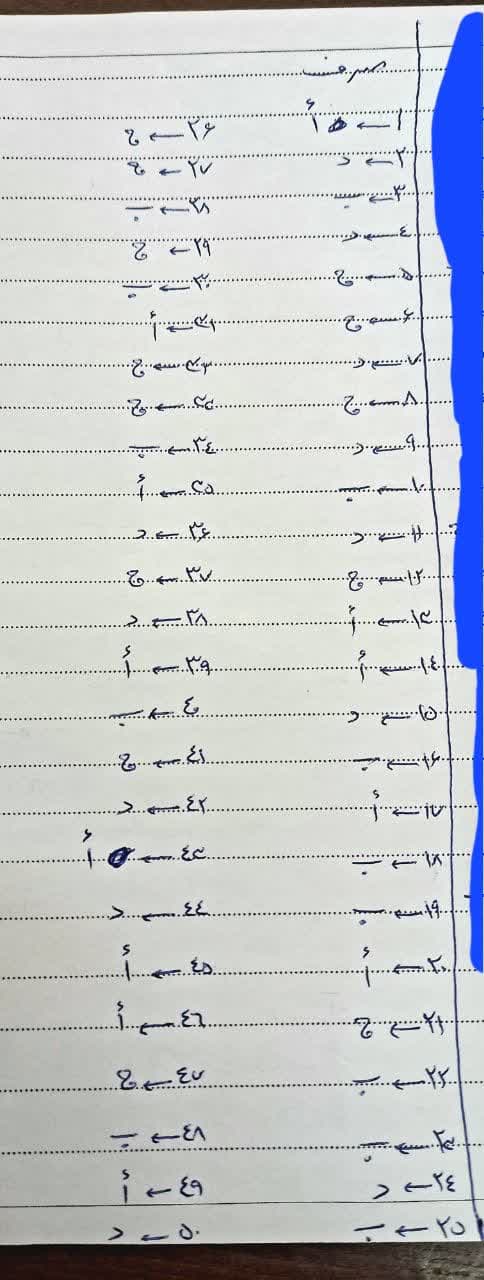 صرف
١ ← أ
٢ ← د
٣ ← ب
٤ ← د
٥ ← ج
۶ ← ج
٧ ← د
٨ ← ج
٩ ← د
١٠ ← ب
١١ ← د
١٢ ← ج
١٣ ← أ
١٤ ← أ
١٥ ← د
١۶ ← ب
١٧ ← أ
١٨ ← ب
١٩ ← ب
٢٠ ← أ
٢١ ← ج
٢٢ ← ب
٢٣ ← ب
٢٤ ← د
٢٥ ← ب
٢۶ ← ج
٢٧ ← ج
٢٨ ← ب
٢٩ ← ج
٣٠ ← ب
٣١ ← أ
٣٢ ← ج
٣٣ ← ج
٣٤ ← ب
٣٥ ← أ
٣۶ ← د
٣٧ ← ج
٣٨ ← د
٣٩ ← أ
٤٠ ← ب
٤١ ← ج
٤٢ ← د
٤٣ ← أ
٤٤ ← د
٤٥ ← أ
٤٦ ← أ
٤٧ ← ج
٤٨ ← ب
٤٩ ← أ
٥٠ ← د